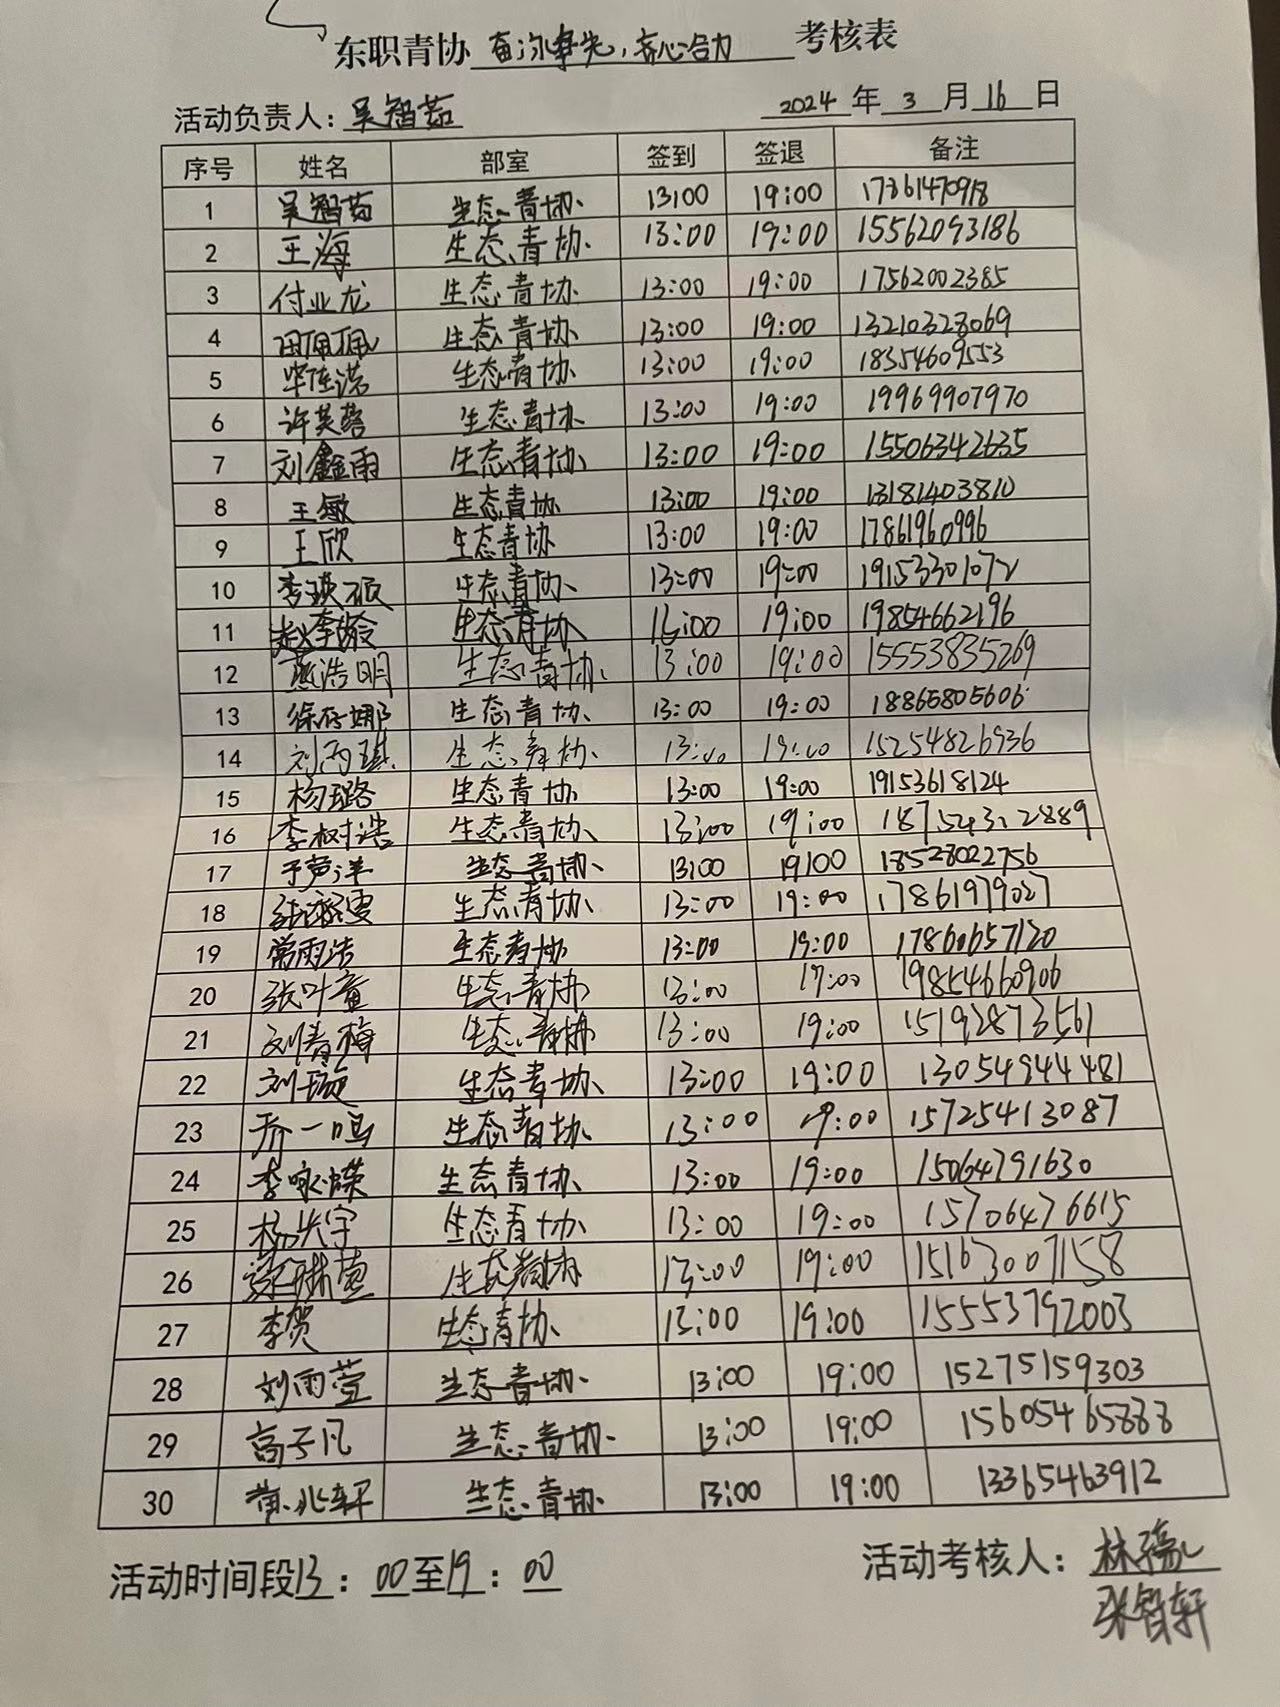 东职青协 奋泳争先，齐心合力 考核表
活动负责人：吴智茹 2024 年 3 月 16 日
序号 姓名 部室 签到 签退 备注
1 吴智茹 生态青协 13:00 19:00 17861470918
2 王海 生态青协 13:00 19:00 15562093186
3 付业龙 生态青协 13:00 19:00 17562002385
4 田佩佩 生态青协 13:00 19:00 13210328069
5 生态青协 13:00 19:00 18354609553
6 许英蕗 生态青协 13:00 19:00 19969907970
7 刘鑫雨 生态青协 13:00 19:00 15506342635
8 王敏 生态青协 13:00 19:00 13181403810
9 王欣 生态青协 13:00 19:00 17861960996
10 李瑛硕 生态青协 13:00 19:00 19153301072
11 赵李龄 生态青协 16:00 19:00 19854662196
12 燕浩明 生态青协 13:00 19:00 15553835269
13 徐存娜 生态青协 13:00 19:00 18865805606
14 刘雨琪 生态青协 13:00 19:00 15254826936
15 杨璐 生态青协 13:00 19:00 19153618124
16 李树浩 生态青协 13:00 19:00 18754312889
17 于声洋 生态青协 13:00 19:00 18528022756
18 生态青协 13:00 19:00 17861979027
19 常雨浩 生态青协 13:00 19:00 17860657120
20 张叶童 生态青协 13:00 19:00 19854660906
21 刘青梅 生态青协 13:00 19:00 15192873561
22 刘璇 生态青协 13:00 19:00 13054944481
23 乔一鸣 生态青协 13:00 19:00 15725413087
24 李咏嵘 生态青协 13:00 19:00 15064791630
25 杨洪宇 生态青协 13:00 19:00 15706476615
26 生态青协 13:00 19:00 15163007158
27 李贺 生态青协 13:00 19:00 15553792003
28 刘雨萱 生态青协 13:00 19:00 15275159303
29 高子凡 生态青协 13:00 19:00 15605465888
30 黄兆轩 生态青协 13:00 19:00 13365463912
活动时间段13：00至19：00 活动考核人：
张智轩